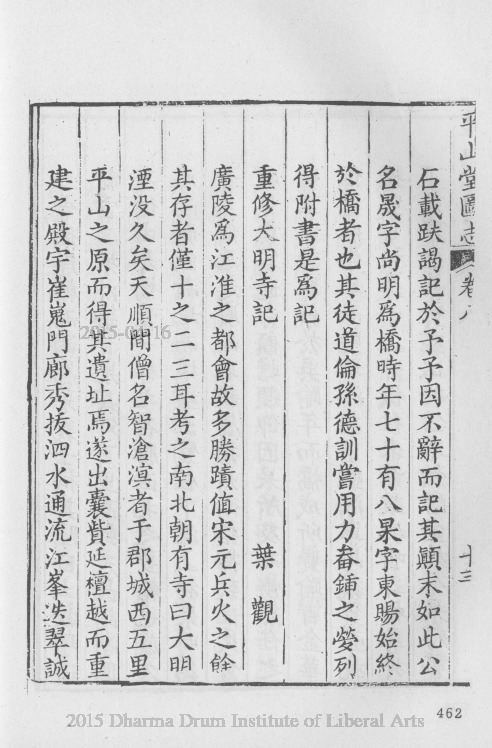 平山堂圖志 卷八 十三
石載趺謁記於予予因不辭而記其顛末如此公
名晟字尚明爲橋時年七十有八果字東賜始終
於橋者也其徒道倫孫德訓嘗用力畚鍤之勞列
得附書是爲記
重修大明寺記 葉觀
廣陵爲江淮之都會故多勝蹟值宋元兵火之餘
其存者僅十之二三耳考之南北朝有寺曰大明
湮没久矣天順間僧名智滄溟者于郡城西五里
平山之原而得其遺址焉遂出囊貲延檀越而重
建之殿宇崔嵬門廊秀拔泗水通流江峯迭翠誠
2015-04-16
462
2015 Dharma Drum Institute of Liberal Arts